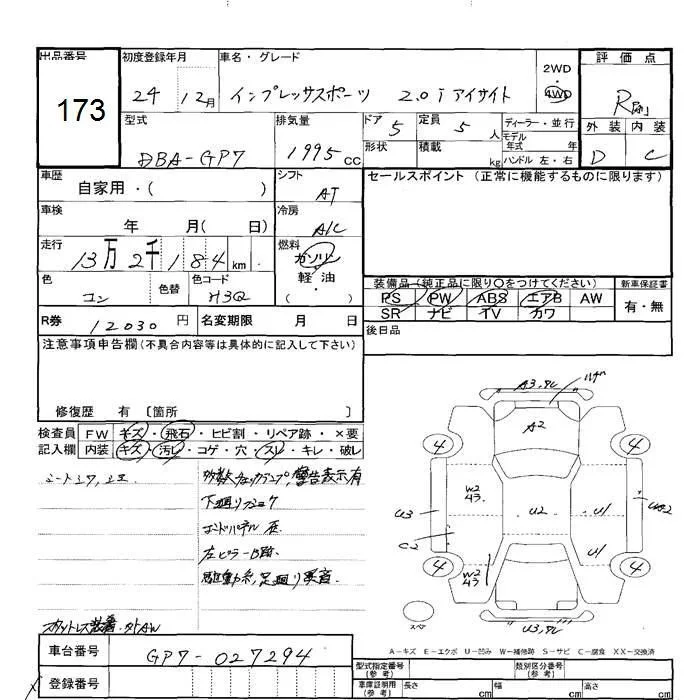 出品番号 初度登録年月 車名・グレード 評価点
173
24 12月 インプレッサスポーツ 2.0i アイサイト 2WD 4WD R
型式 排気量 ドア 5 定員 5人 ディーラー・並行 外装 内装
DBA-GP7 1995cc 形状 積載 kg モデル年式 年 ハンドル 左・右 D C
車歴 自家用・( ) シフト AT セールスポイント (正常に機能するものに限ります)
車検 年 月( 日) 冷房 A/C
走行 13万2千184km 燃料 ガソリン 軽油 ( )
色 コン 色替 色コード H3Q
装備品(純正品に限り○をつけてください) 新車保証書
PS PW ABS エアB AW 有・無
SR ナビ TV カワ
R券 12030円 名変期限 月 日 後日品
注意事項申告欄(不具合内容等は具体的に記入して下さい)
修復歴 有 〔箇所 〕
検査員 FW キズ・飛石・ヒビ割・リペア跡・×要
記入欄 内装 キズ・汚レ・コゲ・穴・スレ・キレ・破レ
多数チェックランプ、警告表示有
下廻り
エンドパネル
左ピラー
駆動系、足廻り異音
装着
車台番号 GP7-027294
登録番号
A3 A2
4 4
W2 U3 U2 U1
C2 U1
W2
4 4
U3
スペア
A-キズ E-エクボ U-凹み W-補修跡 S-サビ C-腐食 XX-交換済
型式指定番号(参考) 類別区分番号(参考)
車庫証明用(参考) 長さ cm 幅 cm 高さ cm